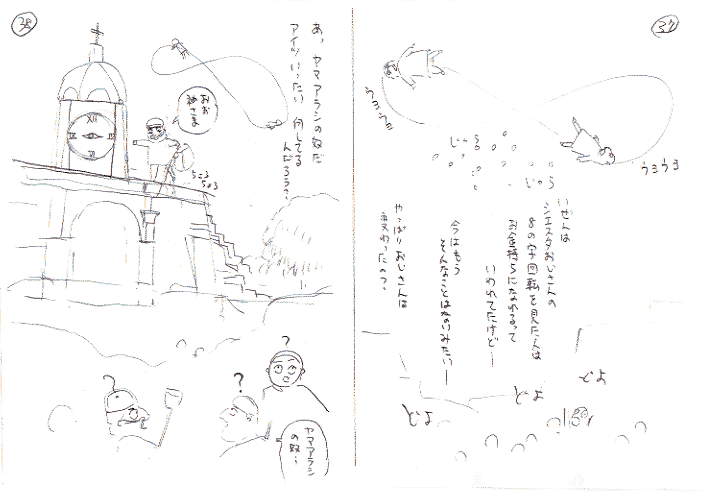 37
うヨうヨ
うヨうヨ
じゃら
じゃら
いぜんは
シエスタおじさんの
8の字回転を見た人は
お金持ちになれるって
いわれてたけど——
今はもう
そんなことはないみたい——
やっぱりおじさんは
変わったの？
どよ
どよ
どよ
38
あ、ヤマアランの奴だ
アイツいったい何してる
んだろう？
おお
神さま
ちょろ
ちょろ
XII
?
?
?
ヤマアラン
の奴…